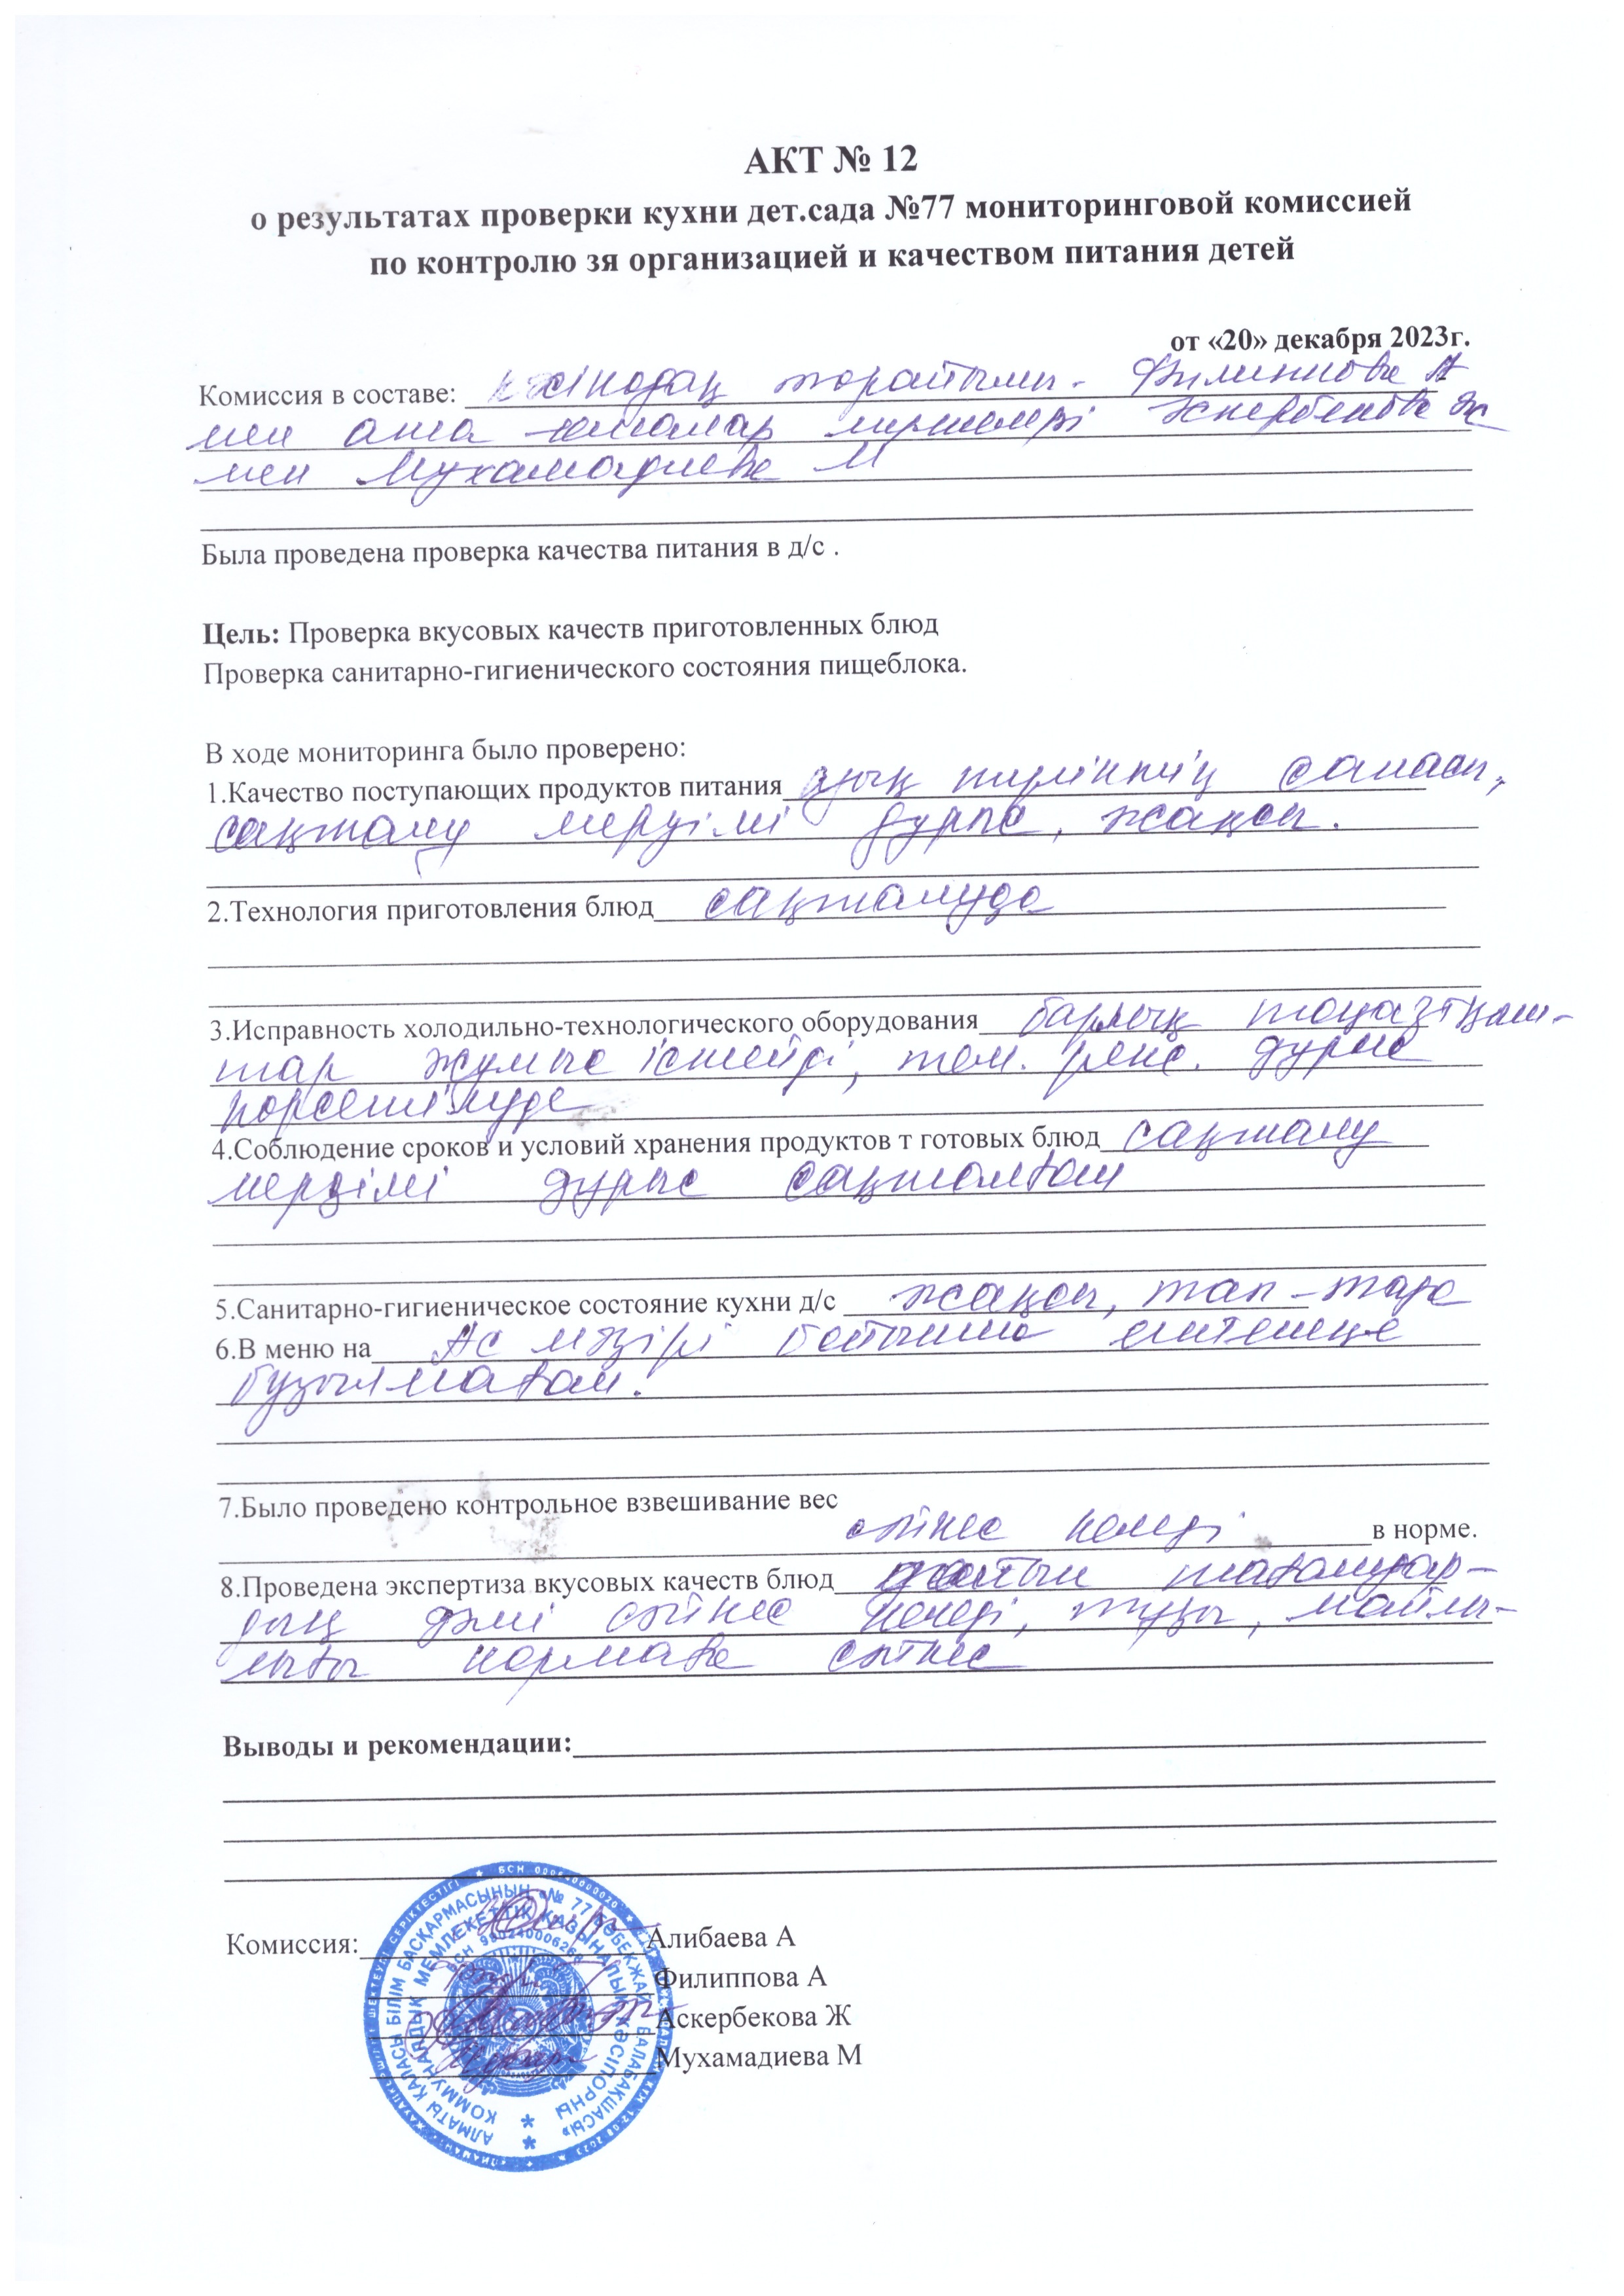 АКТ № 12
о результатах проверки кухни дет.сада №77 мониторинговой комиссией
по контролю зя организацией и качеством питания детей
от «20» декабря 2023г.
Комиссия в составе: кәсіподақ торайымы - Филиппова А
мен ата-аналар мүшелері Аскербекова Ж
мен Мухамадиева М
Была проведена проверка качества питания в д/с .
Цель: Проверка вкусовых качеств приготовленных блюд
Проверка санитарно-гигиенического состояния пищеблока.
В ходе мониторинга было проверено:
1.Качество поступающих продуктов питания азық түліктің сапасы,
сақталу мерзімі дұрыс, жақсы.
2.Технология приготовления блюд сақталуда
3.Исправность холодильно-технологического оборудования барлық тоңазтқыш-
тар жұмыс істейді, тем. реж. дұрыс
көрсетілуде
4.Соблюдение сроков и условий хранения продуктов т готовых блюд сақталу
мерзімі дұрыс сақталған
5.Санитарно-гигиеническое состояние кухни д/с жақсы, тап-таза
6.В меню на Ас мәзірі бойынша ештеңе
бұзылмаған.
7.Было проведено контрольное взвешивание вес
сәйкес келеді в норме.
8.Проведена экспертиза вкусовых качеств блюд дайын тағамдар-
дың дәмі сәйкес келеді, тұзы, майлы-
лығы нормаға сәйкес
Выводы и рекомендации:
Комиссия: Алибаева А
Филиппова А
Аскербекова Ж
Мухамадиева М
АЛМАТЫ ҚАЛАСЫ БІЛІМ БАСҚАРМАСЫНЫҢ «№ 77 БӨБЕКЖАЙ БАЛАБАҚШАСЫ»
КОММУНАЛДЫҚ МЕМЛЕКЕТТІК ҚАЗЫНАЛЫҚ КӘСІПОРНЫ
БСН 990240006268